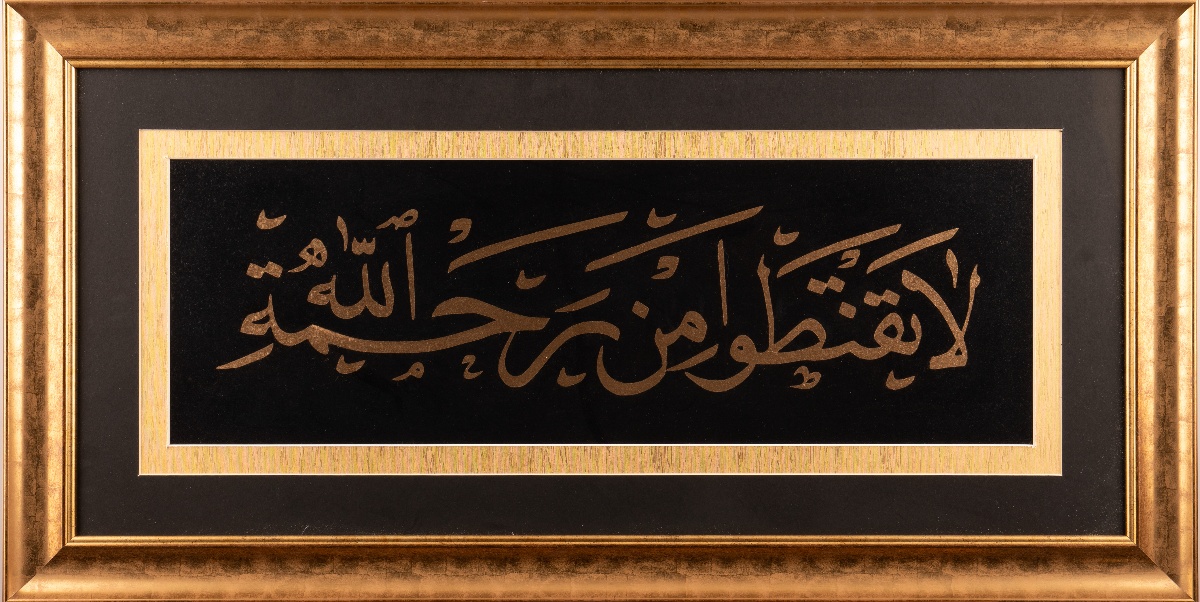 لا يقنطوا من رحمة الله